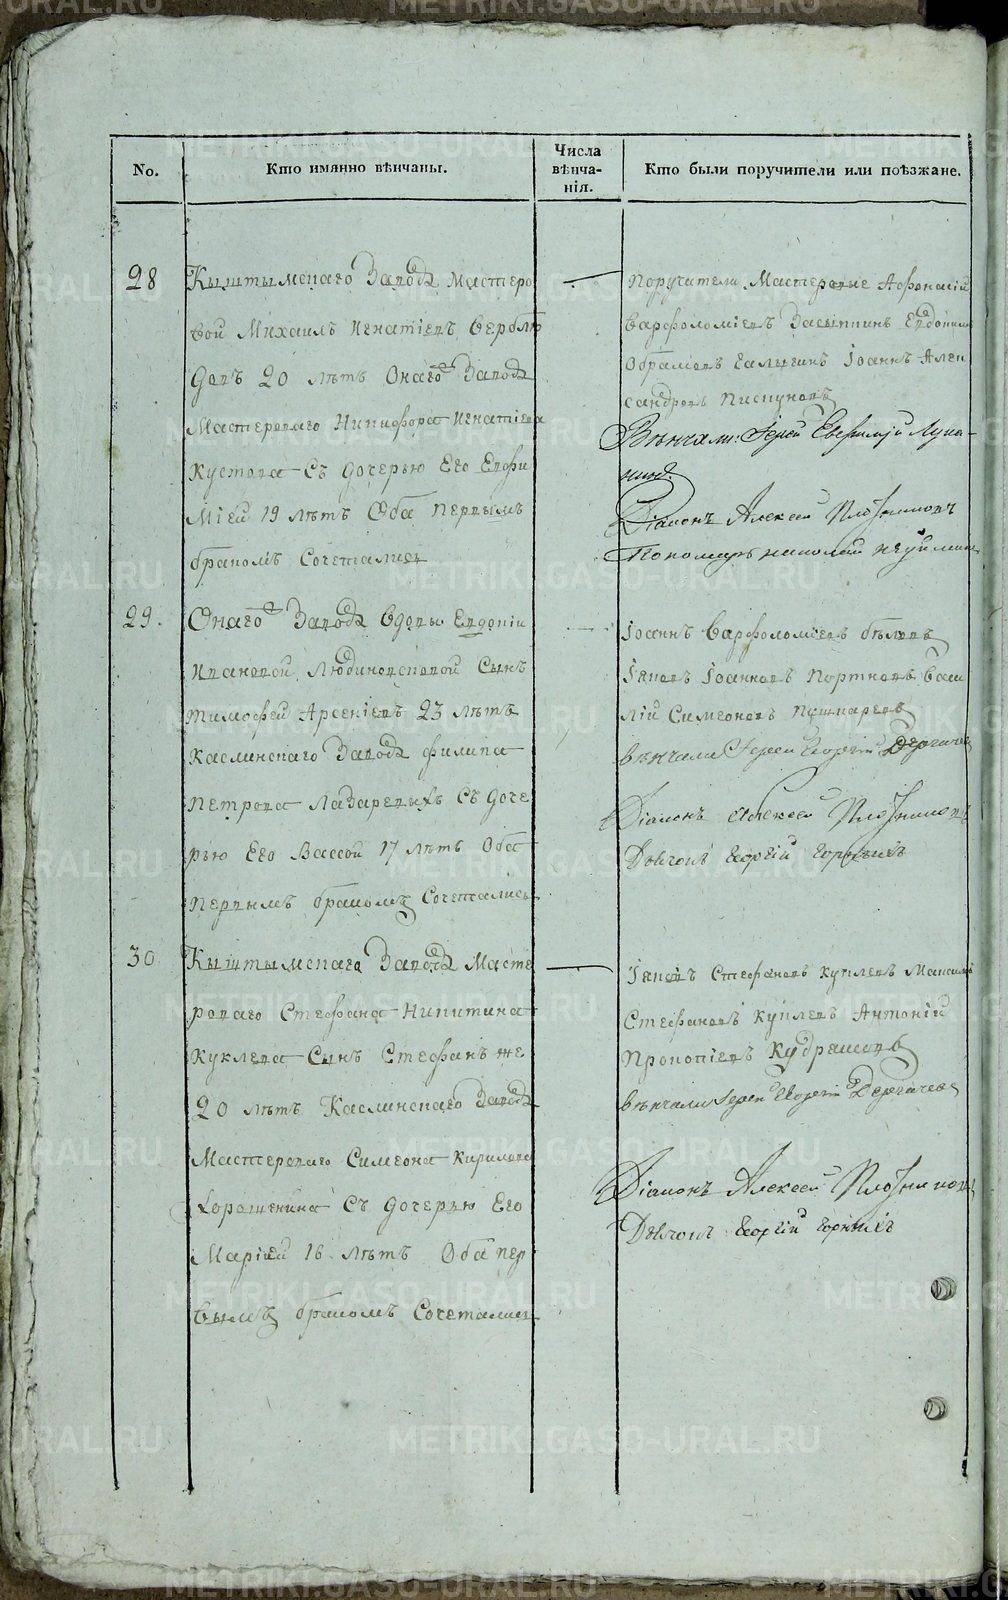 No.
Кто имянно вѣнчаны.
Числа
вѣнча-
нія.
Кто были поручители или поѣзжане.
28
Кыштымскаго Завода Мастеро
вой Михаилъ Игнатіевъ Верблю
довъ 20 лѣтъ Онаго Завода
Мастероваго Никифора Игнатіева
Кустова Съ дочерью Его Евфи
міей 19 лѣтъ Оба первымъ
бракомъ Сочетались
Поручители Мастеровые Афонасій
Варфоломіевъ Засыпкинъ Евдокимъ
Абрамовъ Іоаннъ Алек
сандровъ Пискуновъ
Вѣнчали: Іерей Евфимій Лука-
нинъ.
Діаконъ Алексей Плотниковъ
Пономарь николай
29.
Онаго Завода вдовы Евдокіи
Ивановой Людиновсковой Сынъ
тимофей Арсеніевъ 23 лѣтъ
Каслинскаго Завода филипа
Петрова Лазаревыхъ Съ доче
рью Его Вассой 17 лѣтъ Оба
первымъ бракомъ Сочетались
Іоаннъ Варфоломіевъ бѣловъ
Іаковъ Іоанновъ Портновъ Васи
лій Симеоновъ Пушкаревъ
вѣнчали Іерей Георгій Дергачев
Діаконъ Алексей Плотниковъ
Дьячокъ Георгій Горныхъ
30
Кыштымскаго Завода Масте
роваго Стефана Никитина
Куклева Сынъ Стефанъ же
20 лѣтъ Каслинскаго Завода
Мастероваго Симеона Кирилова
Хорошенина Съ дочерью Его
Маріей 16 лѣтъ Оба пер
вымъ бракомъ Сочетались
Іаковъ Стефановъ Куклевъ Максимъ
Стефановъ Куклевъ Антоній
Прокопіевъ Кудрявовъ
вѣнчали Іерей Георгій Дергачев
Діаконъ Алексей Плотниковъ
Дьячокъ Георгій Горныхъ
METRIKI.GASO-URAL.RU